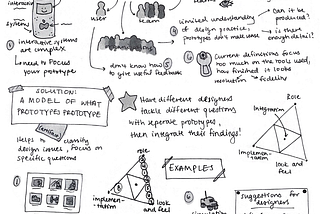 interactive
systems
① interactive systems
are complex
↳ need to focus
your prototype
user
team
organizations
don't know how
to give useful feedback
⑤
④ limited understanding
of design practice,
prototypes don't make sense
can it be
produced?
is there
enough detail?
⑥ Current definitions focus
too much on the tools used,
how finished it looks
resolution
fidelity
SOLUTION:
A MODEL OF WHAT
PROTOTYPES PROTOTYPE
Helps to classify
design issues, focus on
specific questions
Have different designers
tackle different questions
with seperate prototypes,
then integrate their findings!
Role
Integration
Implemen-
tation
look and
feel
role
implemen-
tation
look
and feel
EXAMPLES
①
②
Suggestions for
designers